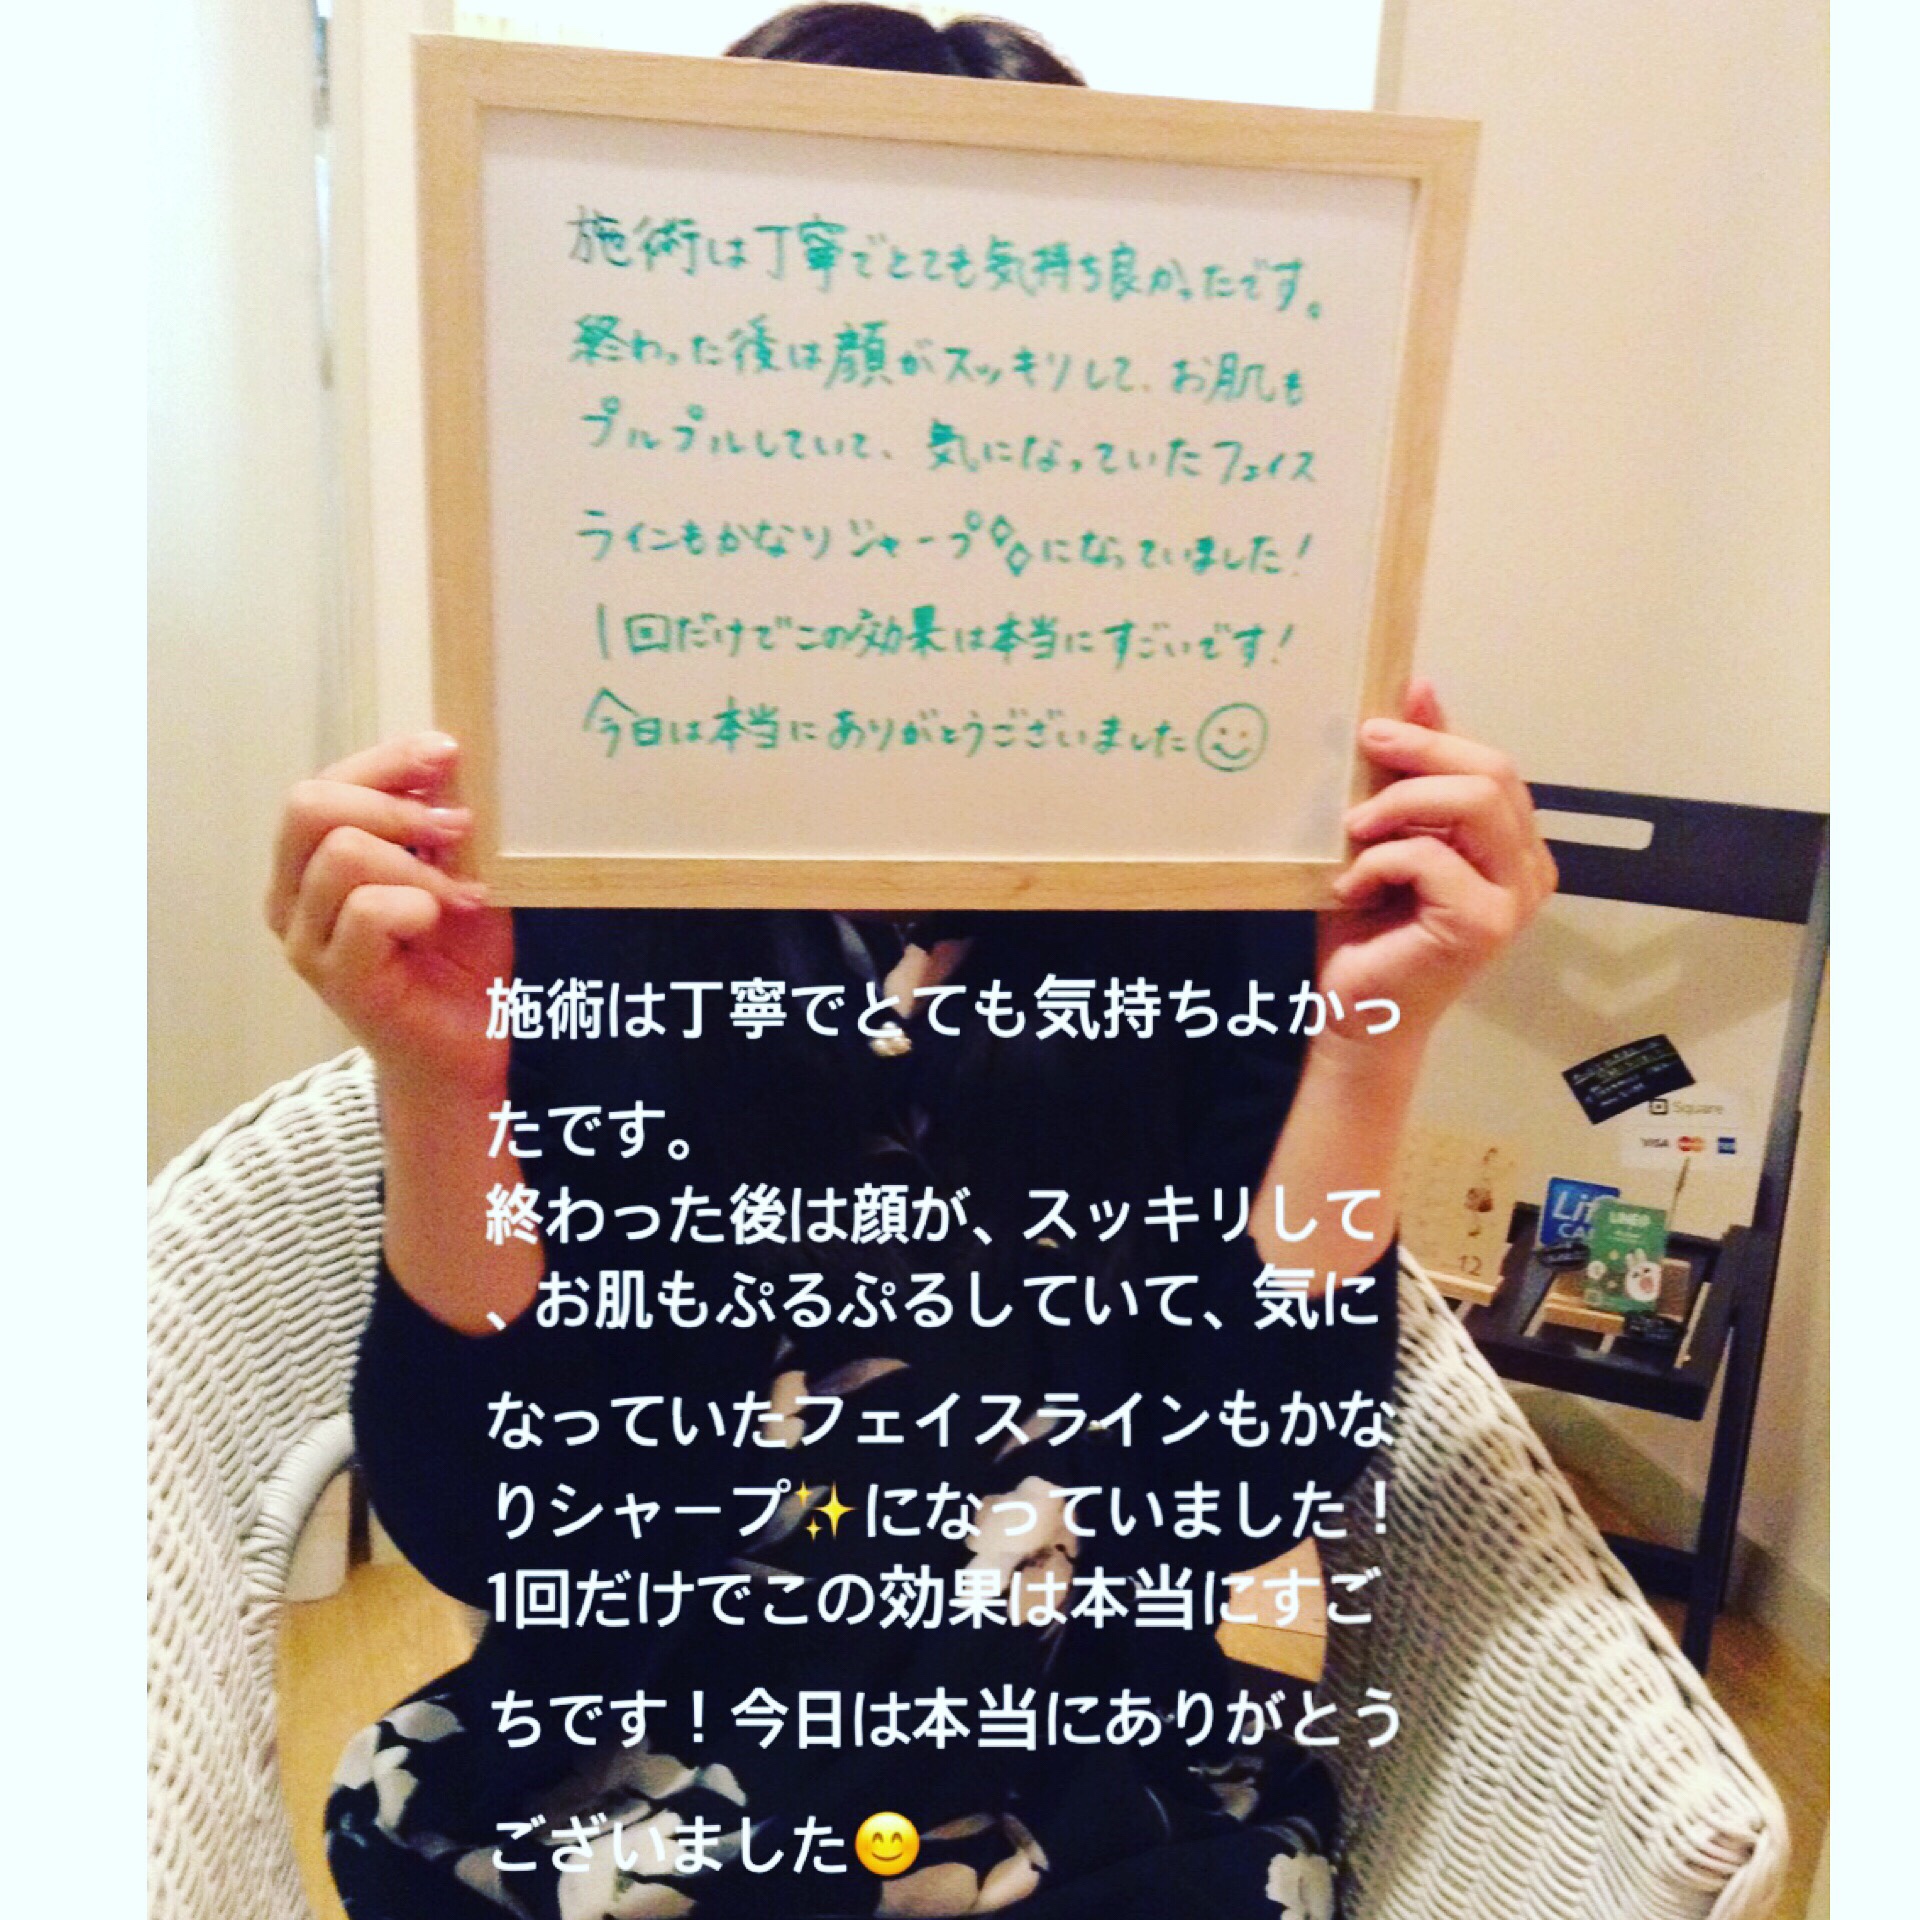 施術は丁寧でとても気持ち良かったです。
終わった後は顔がスッキリして、お肌も
プルプルしていて、気になっていたフェイス
ラインもかなりシャープになっていました!
1回だけでこの効果は本当にすごいです!
今日は本当にありがとうございました
施術は丁寧でとても気持ちよかっ
たです。
終わった後は顔が、スッキリして
、お肌もぷるぷるしていて、気に
なっていたフェイスラインもかな
りシャープ✨になっていました！
1回だけでこの効果は本当にすご
ちです！今日は本当にありがとう
ございました😊
Square
VISA
LINE
12